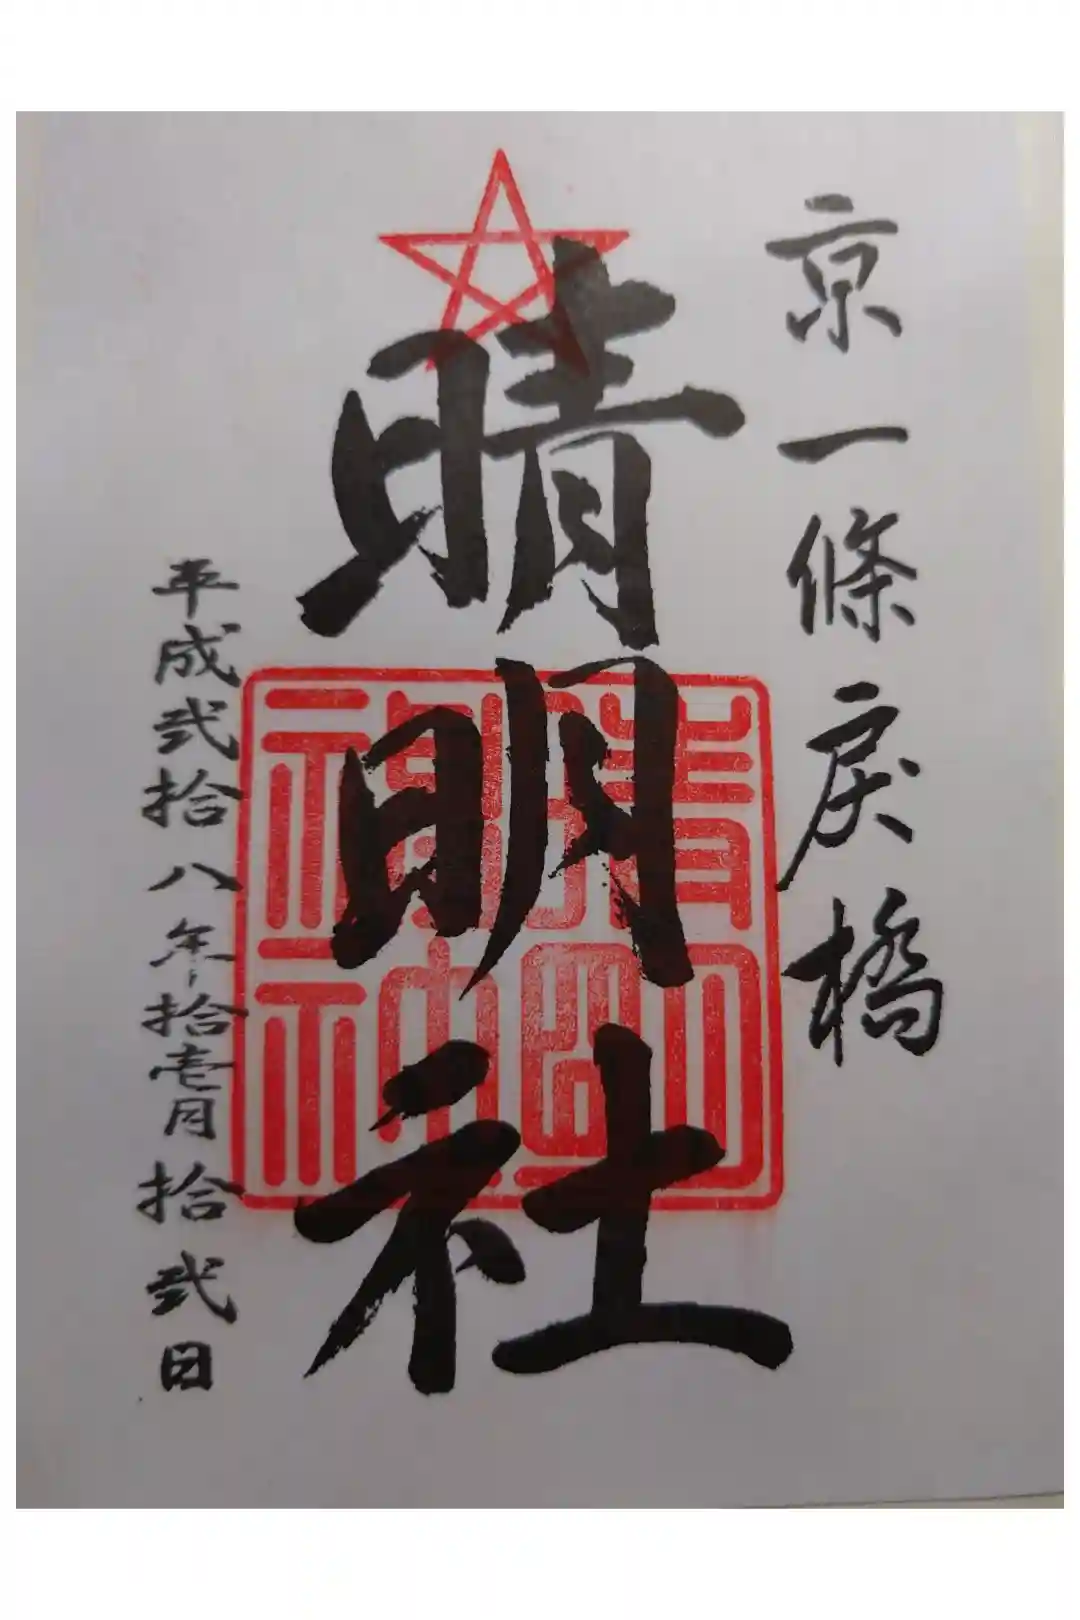 京一條戻橋
晴明社
晴明神社
平成弐拾八年拾壱月拾弐日